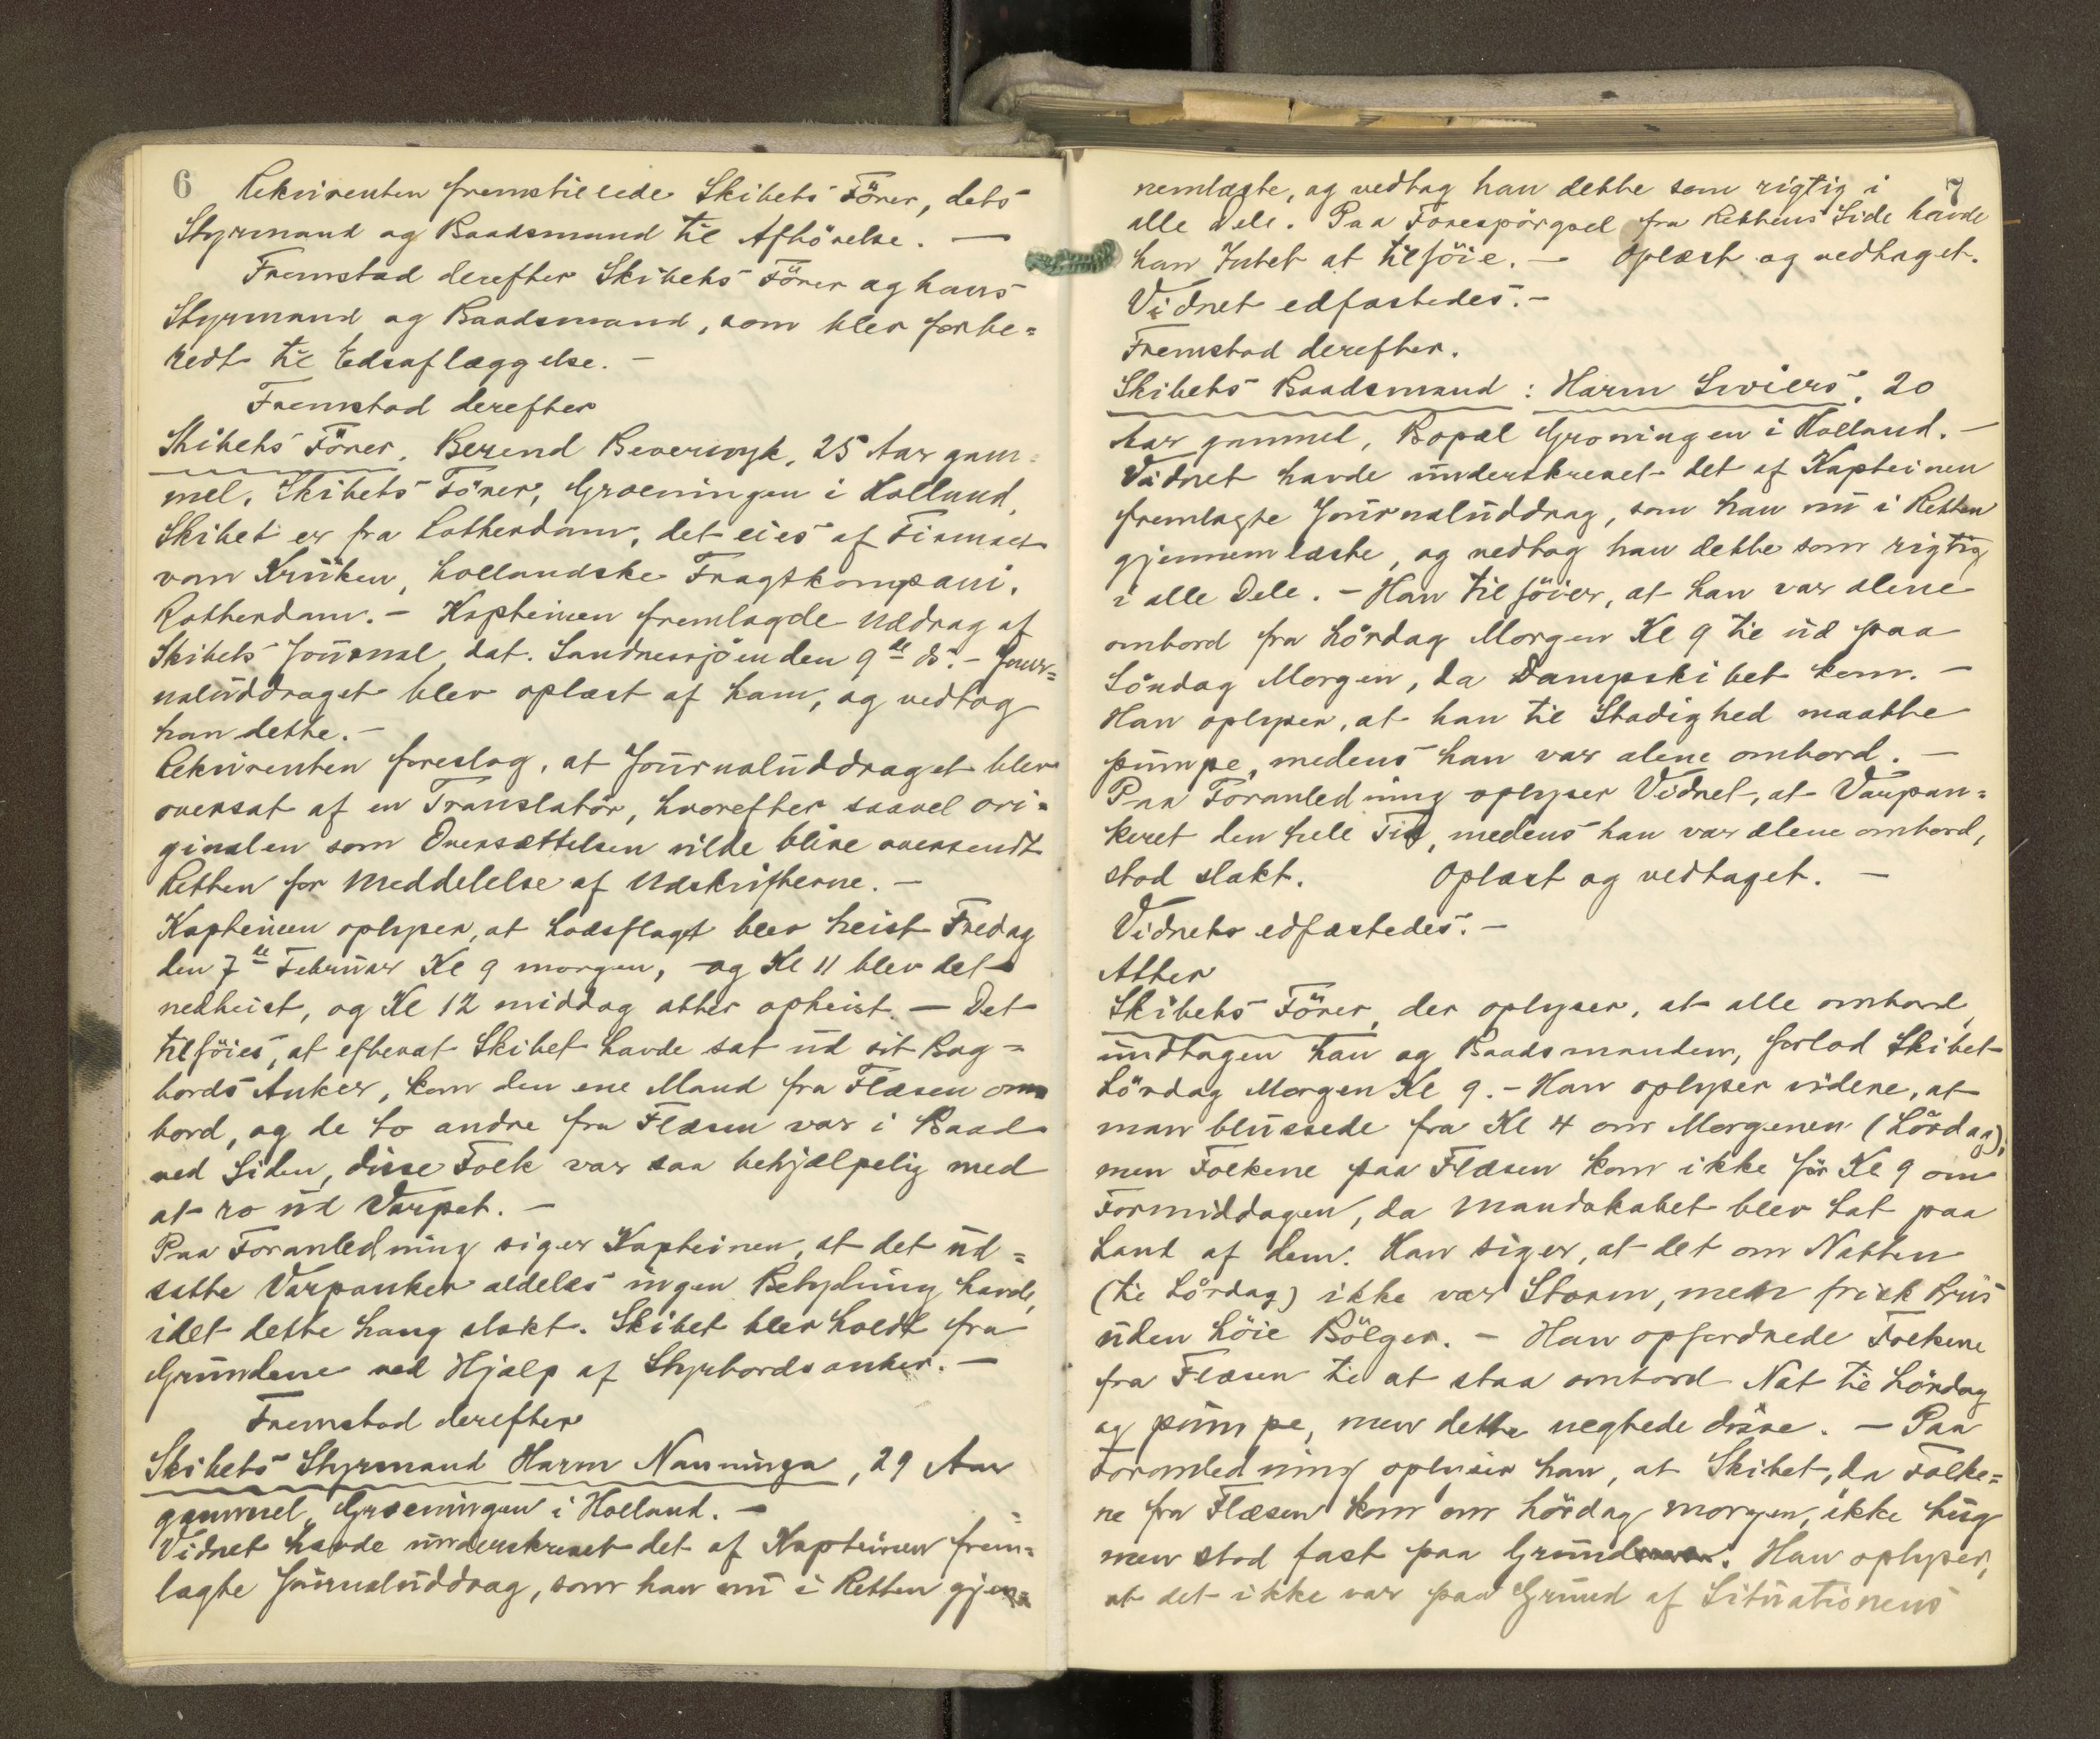 6
Rekvirenten fremstillede Skibets Förer, dets
Styrmand og Baadsmand til Afhörelse. —
Fremstod derefter Skibets Förer og hans
Styrmand og Baadsmand, som blev forbe=
redt til Edsaflæggelse. —
Fremstod derefter
Skibets Förer, Berend Beverwyk, 25 Aar gam=
mel, Skibets Förer, Groeningen i Holland,
Skibet er fra Rotterdam, det eies af Firmaet
van Krüken, hollandske Fragtkompani,
Rotterdam. — Kapteinen fremlagde Uddrag af
Skibets Journal dat. Sandnessjöen den 9de ds. — Jour=
naluddraget blev oplæst af ham, og vedtog
han dette. —
Rekvirenten foreslog, at Journaluddraget blev
oversat af en Translatör, hvorefter saavel ori=
ginalen som Oversættelsen vilde blive oversendt
Retten for Meddelelse af Udskrifterne. —
Kapteinen oplyser, at Lodsflagt blev heist Fredag
den 7de Februar Kl 9 morgen, og Kl 11 blev det
nedheist, og Kl 12 middag atter opheist. — Det
tilföies, at efterat Skibet havde sat ud sit Bag=
bords Anker, kom den ene Mand fra Flæsen om
bord, og de to andre fra Flæsen var i Baad
ved Siden, disse Folk var saa behjælpelig med
at ro ud Varpet. —
Paa Foranledning siger Kapteinen, at det ud=
satte Varpanker aldeles ingen Betydning havde,
idet dette hang slakt. Skibet blev holdt fra
Grundene ved Hjælp af Styrbordsanker. —
Fremstod derefter
Skibets Styrmand Harm Nanninga, 29 Aar
gammel, Groeningen i Holland. —
Vidnet havde underskrevet det af Kapteinen frem=
lagte Journaluddrag, som han nu i Retten gjen=
7
nemlæste, og vedtog han dette som rigtig i
alle Dele. Paa Forespörgsel fra Rettens Side havde
han Intet at tilföie. — Oplæst og vedtaget.
Vidnet edfæstedes. —
Fremstod derefter.
Skibets Baadsmand: Harm Swiers, 20
Aar gammel, Bopæl Groningen i Holland. —
Vidnet havde underskrevet det af Kapteinen
fremlagte Journaluddrag, som han nu i Retten
gjennemlæste, og vedtog han dette som rigtig
i alle Dele. — Han tilföier, at han var alene
ombord fra Lördag Morgen Kl 9 til ud paa
Söndag Morgen, da Dampskibet kom. —
Han oplyser, at han til Stadighed maatte
pumpe, medens han var alene ombord. —
Paa Foranledning oplyser Vidnet, at Varpan=
keret den hele Tid, medens han var alene ombord,
stod slakt. Oplæst og vedtaget. —
Vidnets edfæstedes. —
Atter
Skibets Förer, der oplyser, at alle ombord,
undtagen han og Baadsmanden, forlod Skibet
Lördag Morgen Kl 9. — Han oplyser videre, at
man blussede fra Kl 4 om Morgenen (Lördag),
men Folkene paa Flæsen kom ikke för Kl 9 om
Formiddagen, da Mandskabet blev tat paa
Land af dem. Han siger, at det om Natten
(til Lördag) ikke var Storm, men frisk Bris
uden höie Bölger. — Han opfordrede Folkene
fra Flæsen til at staa ombord Nat til Lördag
og pumpe, men dette negtede disse. — Paa
Foranledning oplyser han, at Skibet, da Folke=
ne fra Flæsen kom om Lördag morgen, ikke hug
men stod fast paa Grund. Han oplyser,
at det ikke var paa Grund af Situationens